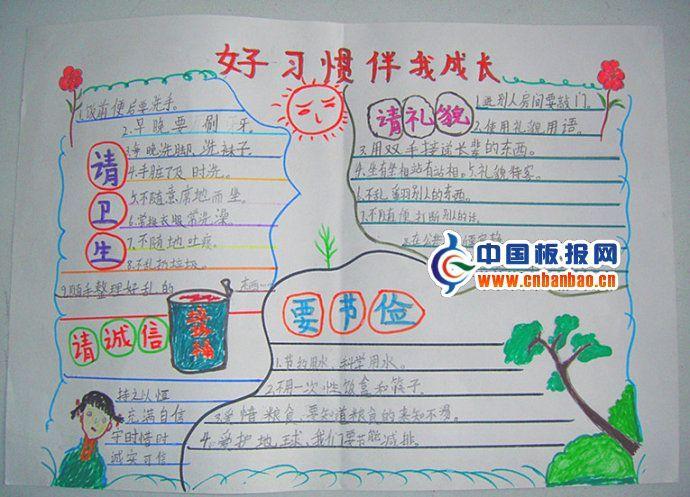 好习惯伴我成长
请卫生
1.饭前便后要洗手。
2.早晚要刷牙。
3.每晚洗脚洗袜子。
4.手脏了及时洗。
5.不随意席地而坐
6.常换衣服常洗澡。
7.不随地吐痰。
8.不乱扔垃圾。
9.随手整理好乱的
请礼貌
1.进别人房间要敲门。
2.使用礼貌用语。
3.用双手接送长辈的东西。
4.坐有坐相站有站相。5.礼貌待客。
6.不乱翻别人的东西。
7.不随便打断别人的话。
8.在公
中国板报网
www.cnbanbao.cn
请诚信
持之以恒
充满自信
守时惜时
诚实可信
要节俭
1.节约用水、科学用水。
2.不用一次性饭盒和筷子。
3.爱惜粮食,要知道粮食的来之不易。
4.爱护地球,我们要节能减排。